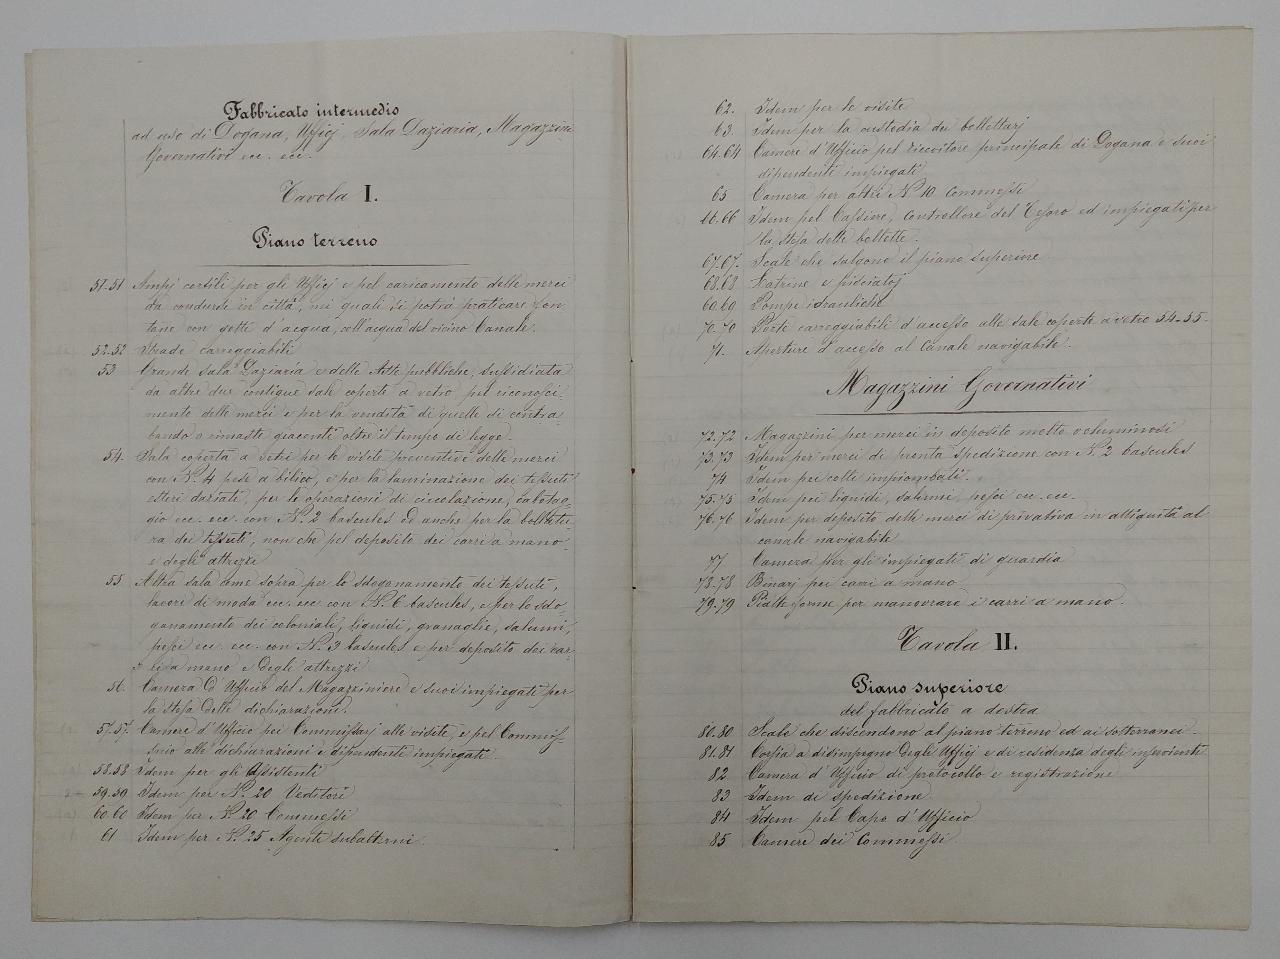 Fabbricato intermedio
ad uso di Dogana, Ufficj, Sala Daziaria, Magazzini
Governativi ecc. ecc.
Tavola I.
Piano terreno
51.51 Ampj cortili per gli Ufficj e pel caricamento delle merci
da condursi in città, nei quali si potrà praticare fon-
tane con getti d'acqua, coll'acqua del vicino Canale.
52.52 Strade carreggiabili
53 Grande sala Daziaria e delle Aste pubbliche, sussidiata
da altre due contigue sale coperte a vetro pel riconosci-
mento delle merci e per la vendita di quelle di contra-
bando o rimaste giacenti oltre il tempo di legge.
54. Sala coperta a vetri per le visite preventive delle merci
con N.º 4 pese a bilico, e per la laminazione dei tessuti
esteri daziati, per le operazioni di circolazione, cabotag-
gio ecc. ecc. con N.º 2 bascules ed anche per la bolletta-
ra dei tessuti, non che pel deposito dei carri a mano
e degli attrezzi
55 Altra sala come sopra per lo sdoganamento dei tessuti,
lavori di moda ecc. ecc. con N.º 6 bascules, e per lo sdo-
ganamento dei coloniali, liquidi, granaglie, salumi,
pesci ecc. ecc. con N.º 3 bascules e per deposito dei car-
ri a mano e degli attrezzi
56. Camera d'Ufficio del Magazziniere e suoi impiegati per
la stesa delle dichiarazioni.
57.57. Camere d'Ufficio pei Commissarj alle visite, e pel Commis-
sario alle dichiarazioni e dipendenti impiegati.
58.58 Idem per gli Assistenti
59.59 Idem per N.º 20 Veditori
60.60 Idem per N.º 20 Commessi
61 Idem per N.º 25 Agenti subalterni.
62. Idem per le visite
63. Idem per la custodia dei bollettarj
64.64 Camere d'Ufficio pel ricevitore principale di Dogana e suoi
dipendenti impiegati
65 Camera per altri N.º 10 Commessi
66.66 Idem pel Cassiere, Controllore del Tesoro ed impiegati per
la stesa delle bollette.
67.67. Scale che salgono il piano superiore
68.68 Latrine e pisciatoj
69.69 Pompe idrauliche
70.70 Porte carreggiabili d'accesso alle sale coperte a vetro 54-55.
71. Aperture d'accesso al Canale navigabile.
Magazzini Governativi
72.72 Magazzini per merci in deposito molto voluminosi
73.73 Idem per merci di pronta spedizione con N.º 2 bascules
74 Idem pei colli impiombati.
75.75 Idem pei liquidi, salumi, pesci ecc. ecc.
76.76 Idem per deposito delle merci di privativa in attiguità al
canale navigabile
77 Camera per gli impiegati di guardia
78.78 Binarj pei carri a mano
79.79 Piatteforme per manovrare i carri a mano.
Tavola II.
Piano superiore
del fabbricato a destra
80.80 Scale che discendono al piano terreno ed ai sotterranei.
81.81 Corsia a disimpegno degli Ufficj e di residenza degli inservienti.
82 Camera d'Ufficio di protocollo e registrazione
83 Idem di spedizione
84 Idem pel Capo d'Ufficio
85 Camere dei Commessi